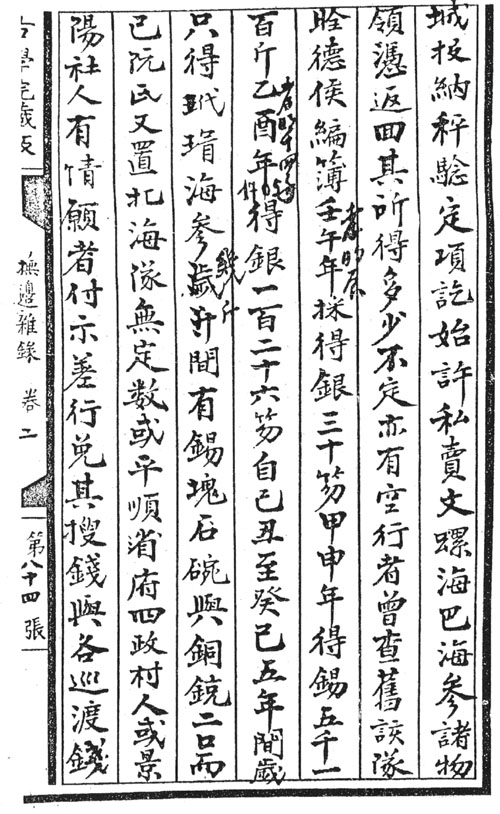 城投納秤驗定項訖始許私賣文螺海巴海參諸物
領憑返回其所得多少不定亦有空行者曾查舊該隊
詮德侯編簿壬午年採得銀三十笏甲申年得錫五千一
百斤乙酉年得銀一百二十六笏自己丑至癸巳五年間歲
只得玳瑁海參歲幾斤間有錫塊石碗與銅銃二口而
已阮氏又置北海隊無定數或平順府四政村人或景
陽社人有情願者付示差行免其搜錢與各巡渡錢
古學院藏板
撫邊雜錄 卷二
第八十四張